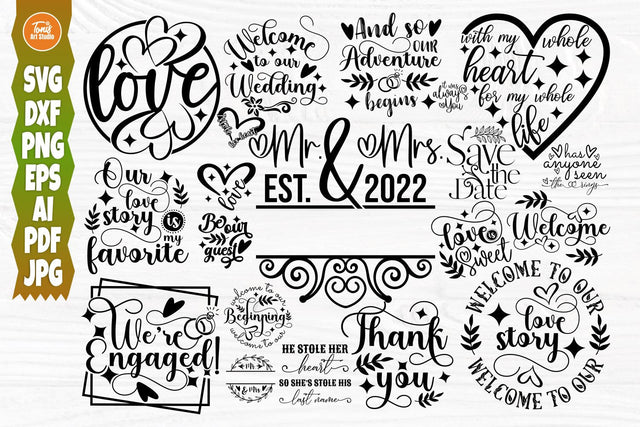 Tonis
Art Studio
SVG
DXF
PNG
EPS
AI
PDF
JPG
love
Welcome
to our
Wedding
And so
OUR
Adventure
begins
it was
always
you
with my whole
heart
for my whole
life
Mr. & Mrs.
EST. 2022
Save
the
Date
has
anyone
seen
the rings
Our
love
story is
my
favorite
love
Be our
guest
love is
sweet
Welcome
We're
Engaged!
welcome to our
Beginning
welcome to our
Mr
& Mrs
HE STOLE HER
heart
SO SHE'S STOLE HIS
last name
Thank
you
WELCOME TO OUR
love
story
WELCOME TO OUR